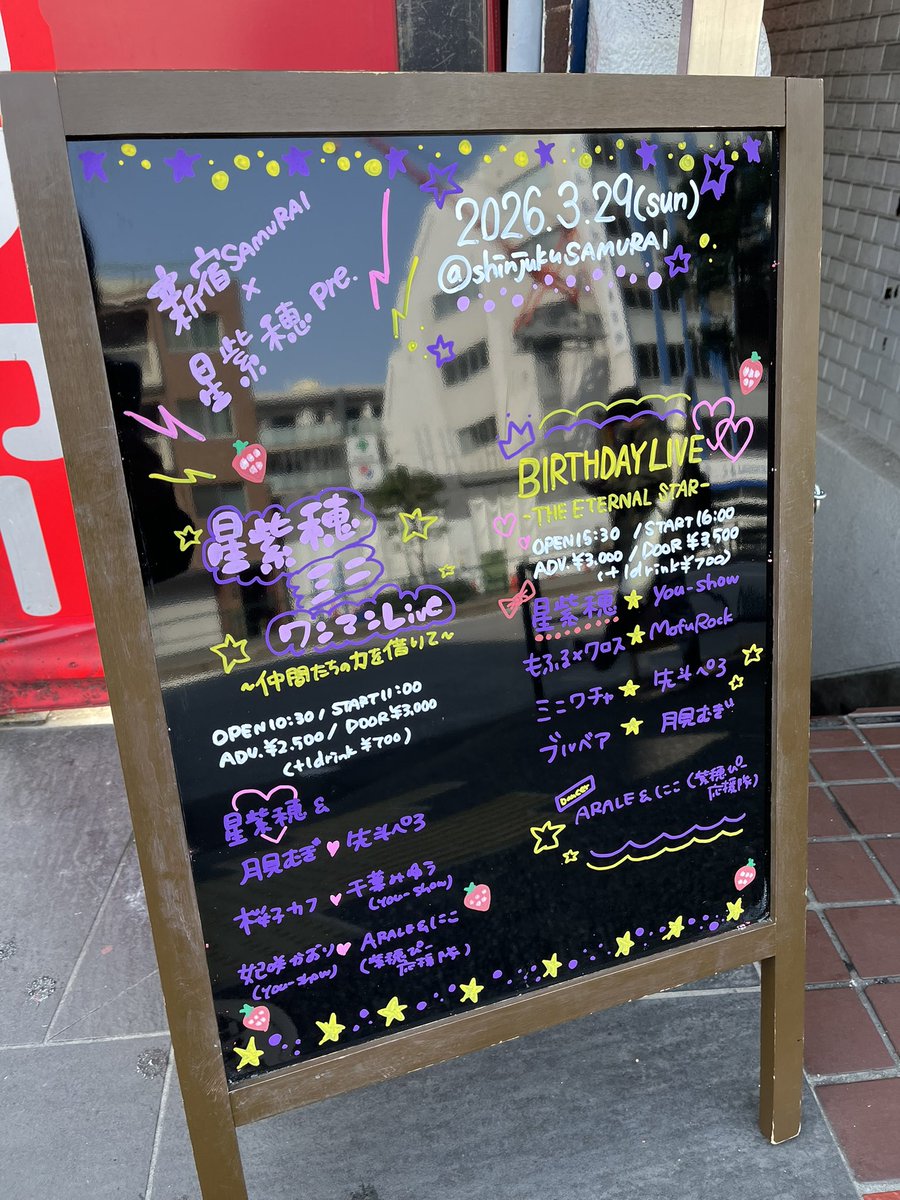 新宿SAMURAI
×
星紫穂 pre.
2026.3.29(sun)
@shinjukuSAMURAI
星紫穂
ミニ
ワンマンLive
~仲間たちの力を借りて~
OPEN10:30 / START11:00
ADV.¥2.500 / DOOR¥3.000
(+1drink¥700)
星紫穂 &
月見むぎ♥先斗ぺろ
桜子カフ♥千葉みゆう
(You-show)
妃咲かおり♥ARALE&にこ
(You-show) (紫穂ぴー
応援隊)
BIRTHDAY LIVE
-THE ETERNAL STAR-
OPEN15:30 / START16:00
ADV.¥3,000 / DOOR¥3,500
(+1drink¥700)
星紫穂★You-show
もふる×クロス★MofuRock
ミニワチャ★先斗ぺろ
ブルベア★月見むぎ
DANCER
ARALE&にこ(紫穂ぴー
応援隊)